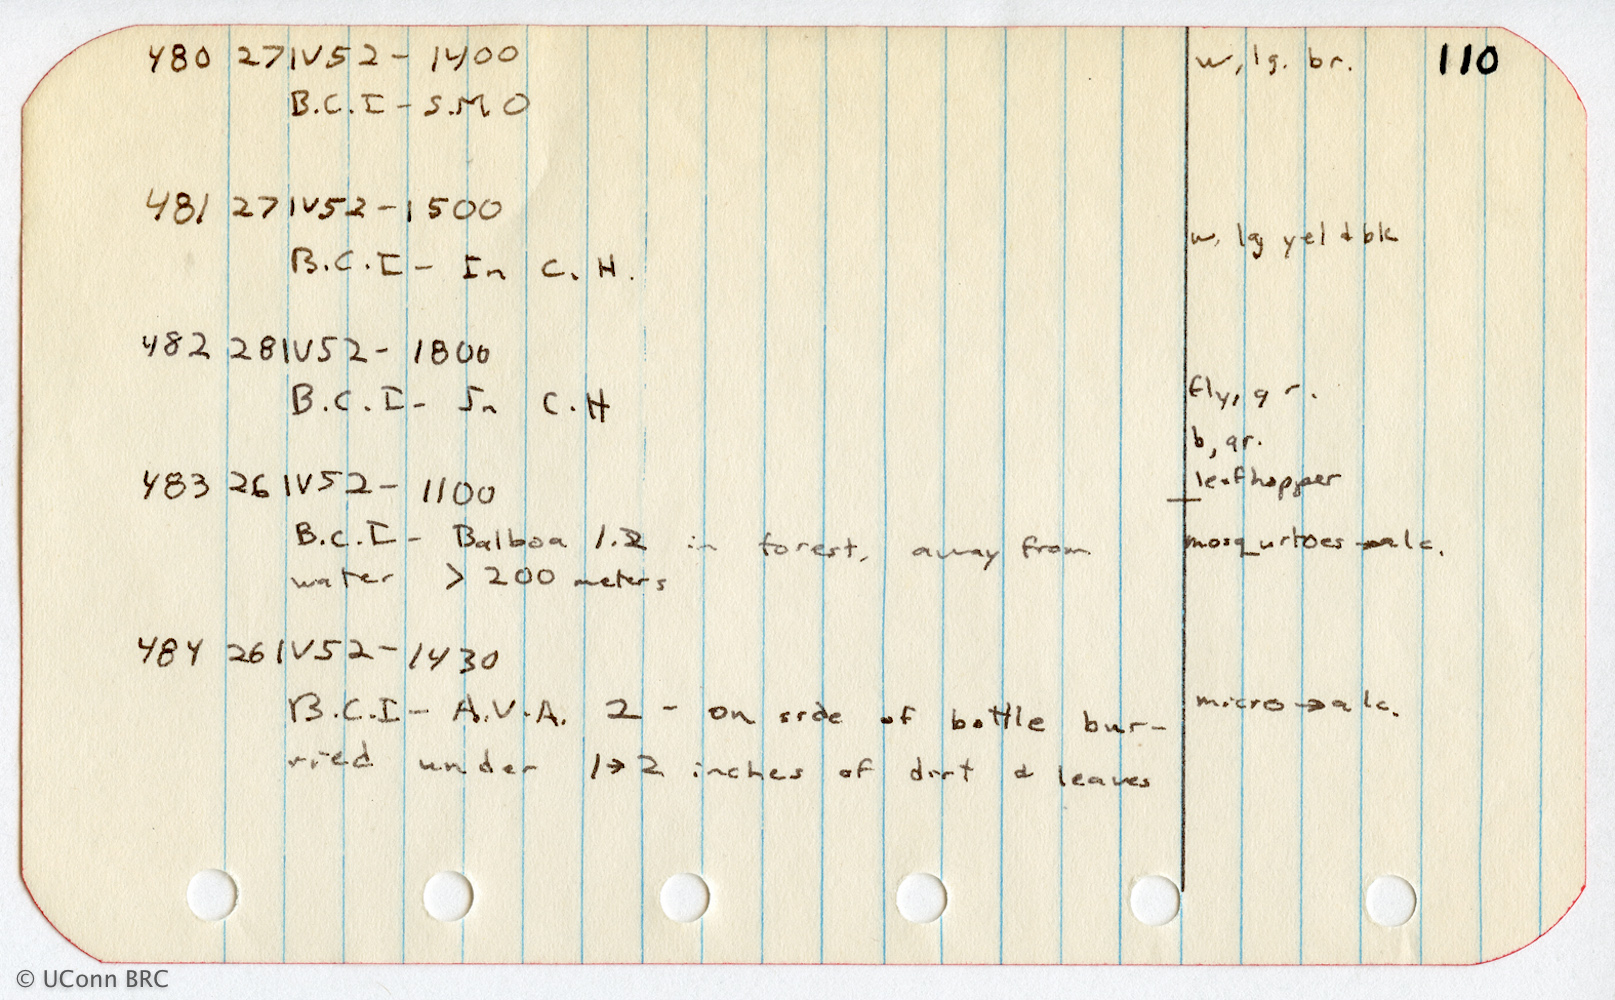 480 27IV52 - 1400 w, lg. br. 110
B.C.I - S.M.O
481 27IV52 - 1500
w, lg yel & blk
B.C.I - In C.H.
482 28IV52 - 1800
fly, gr.
B.C.I - In C.H
b, gr.
483 26IV52 - 1100 leafhopper
B.C.I - Balboa 1.2 in forest, away from mosquitoes → alc.
water > 200 meters
484 26IV52 - 1430
B.C.I - A.V.A. 2 - on side of bottle bur- micro → alc.
ried under 1→2 inches of dirt & leaves
© UConn BRC